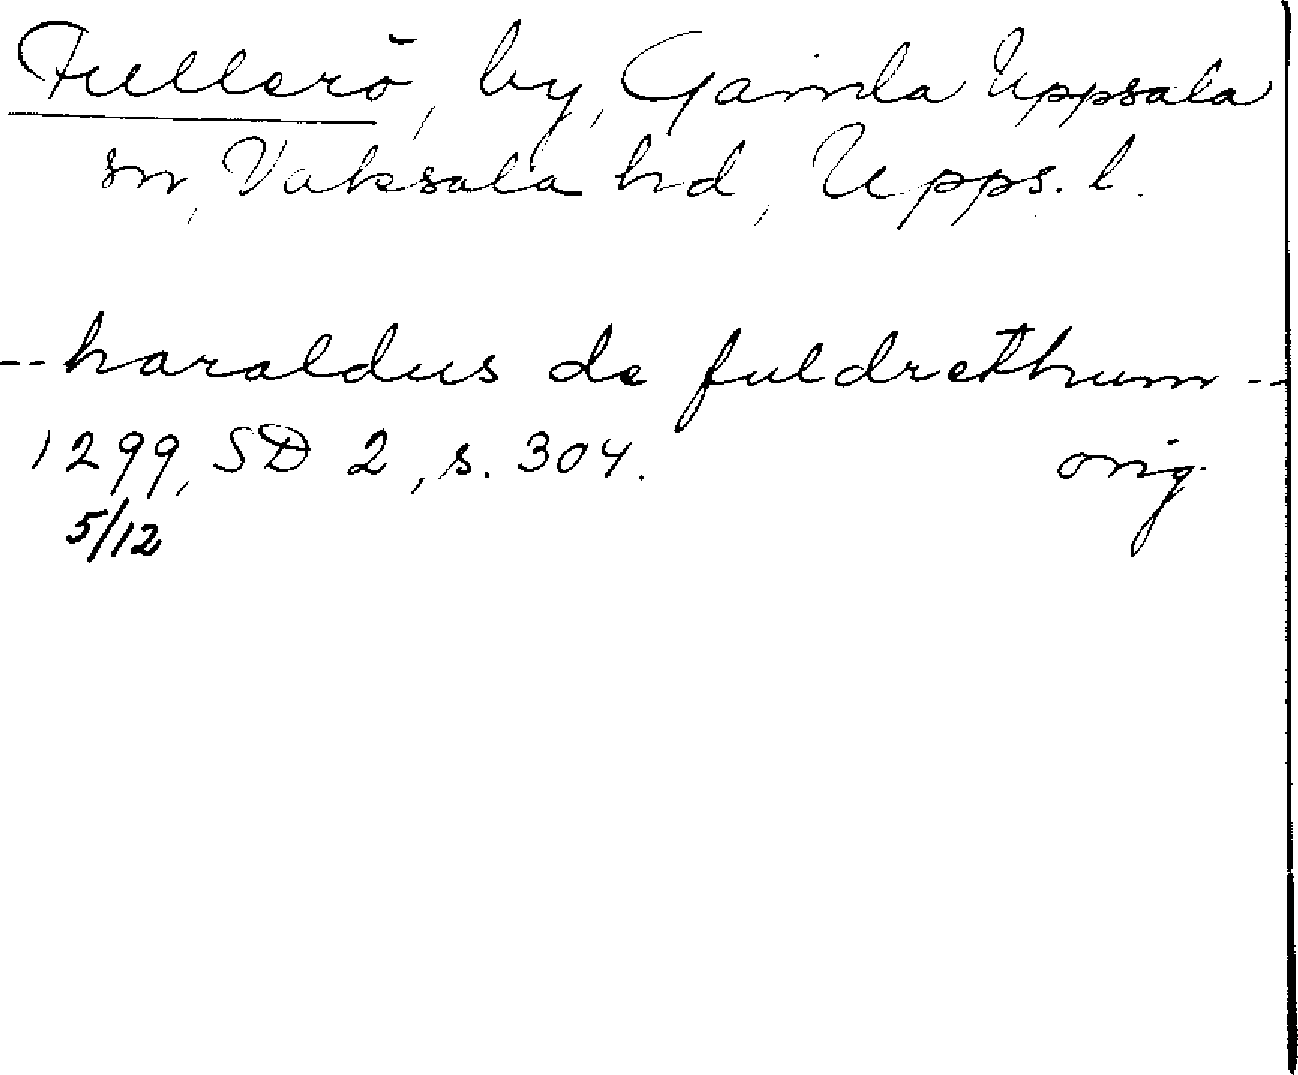 Fullerö, by, Gamla Uppsala
sn, Vaksala hd, Upps. l.
-- haraldus de fuldrethum --
1299, SD 2, s. 304. orig.
5/12